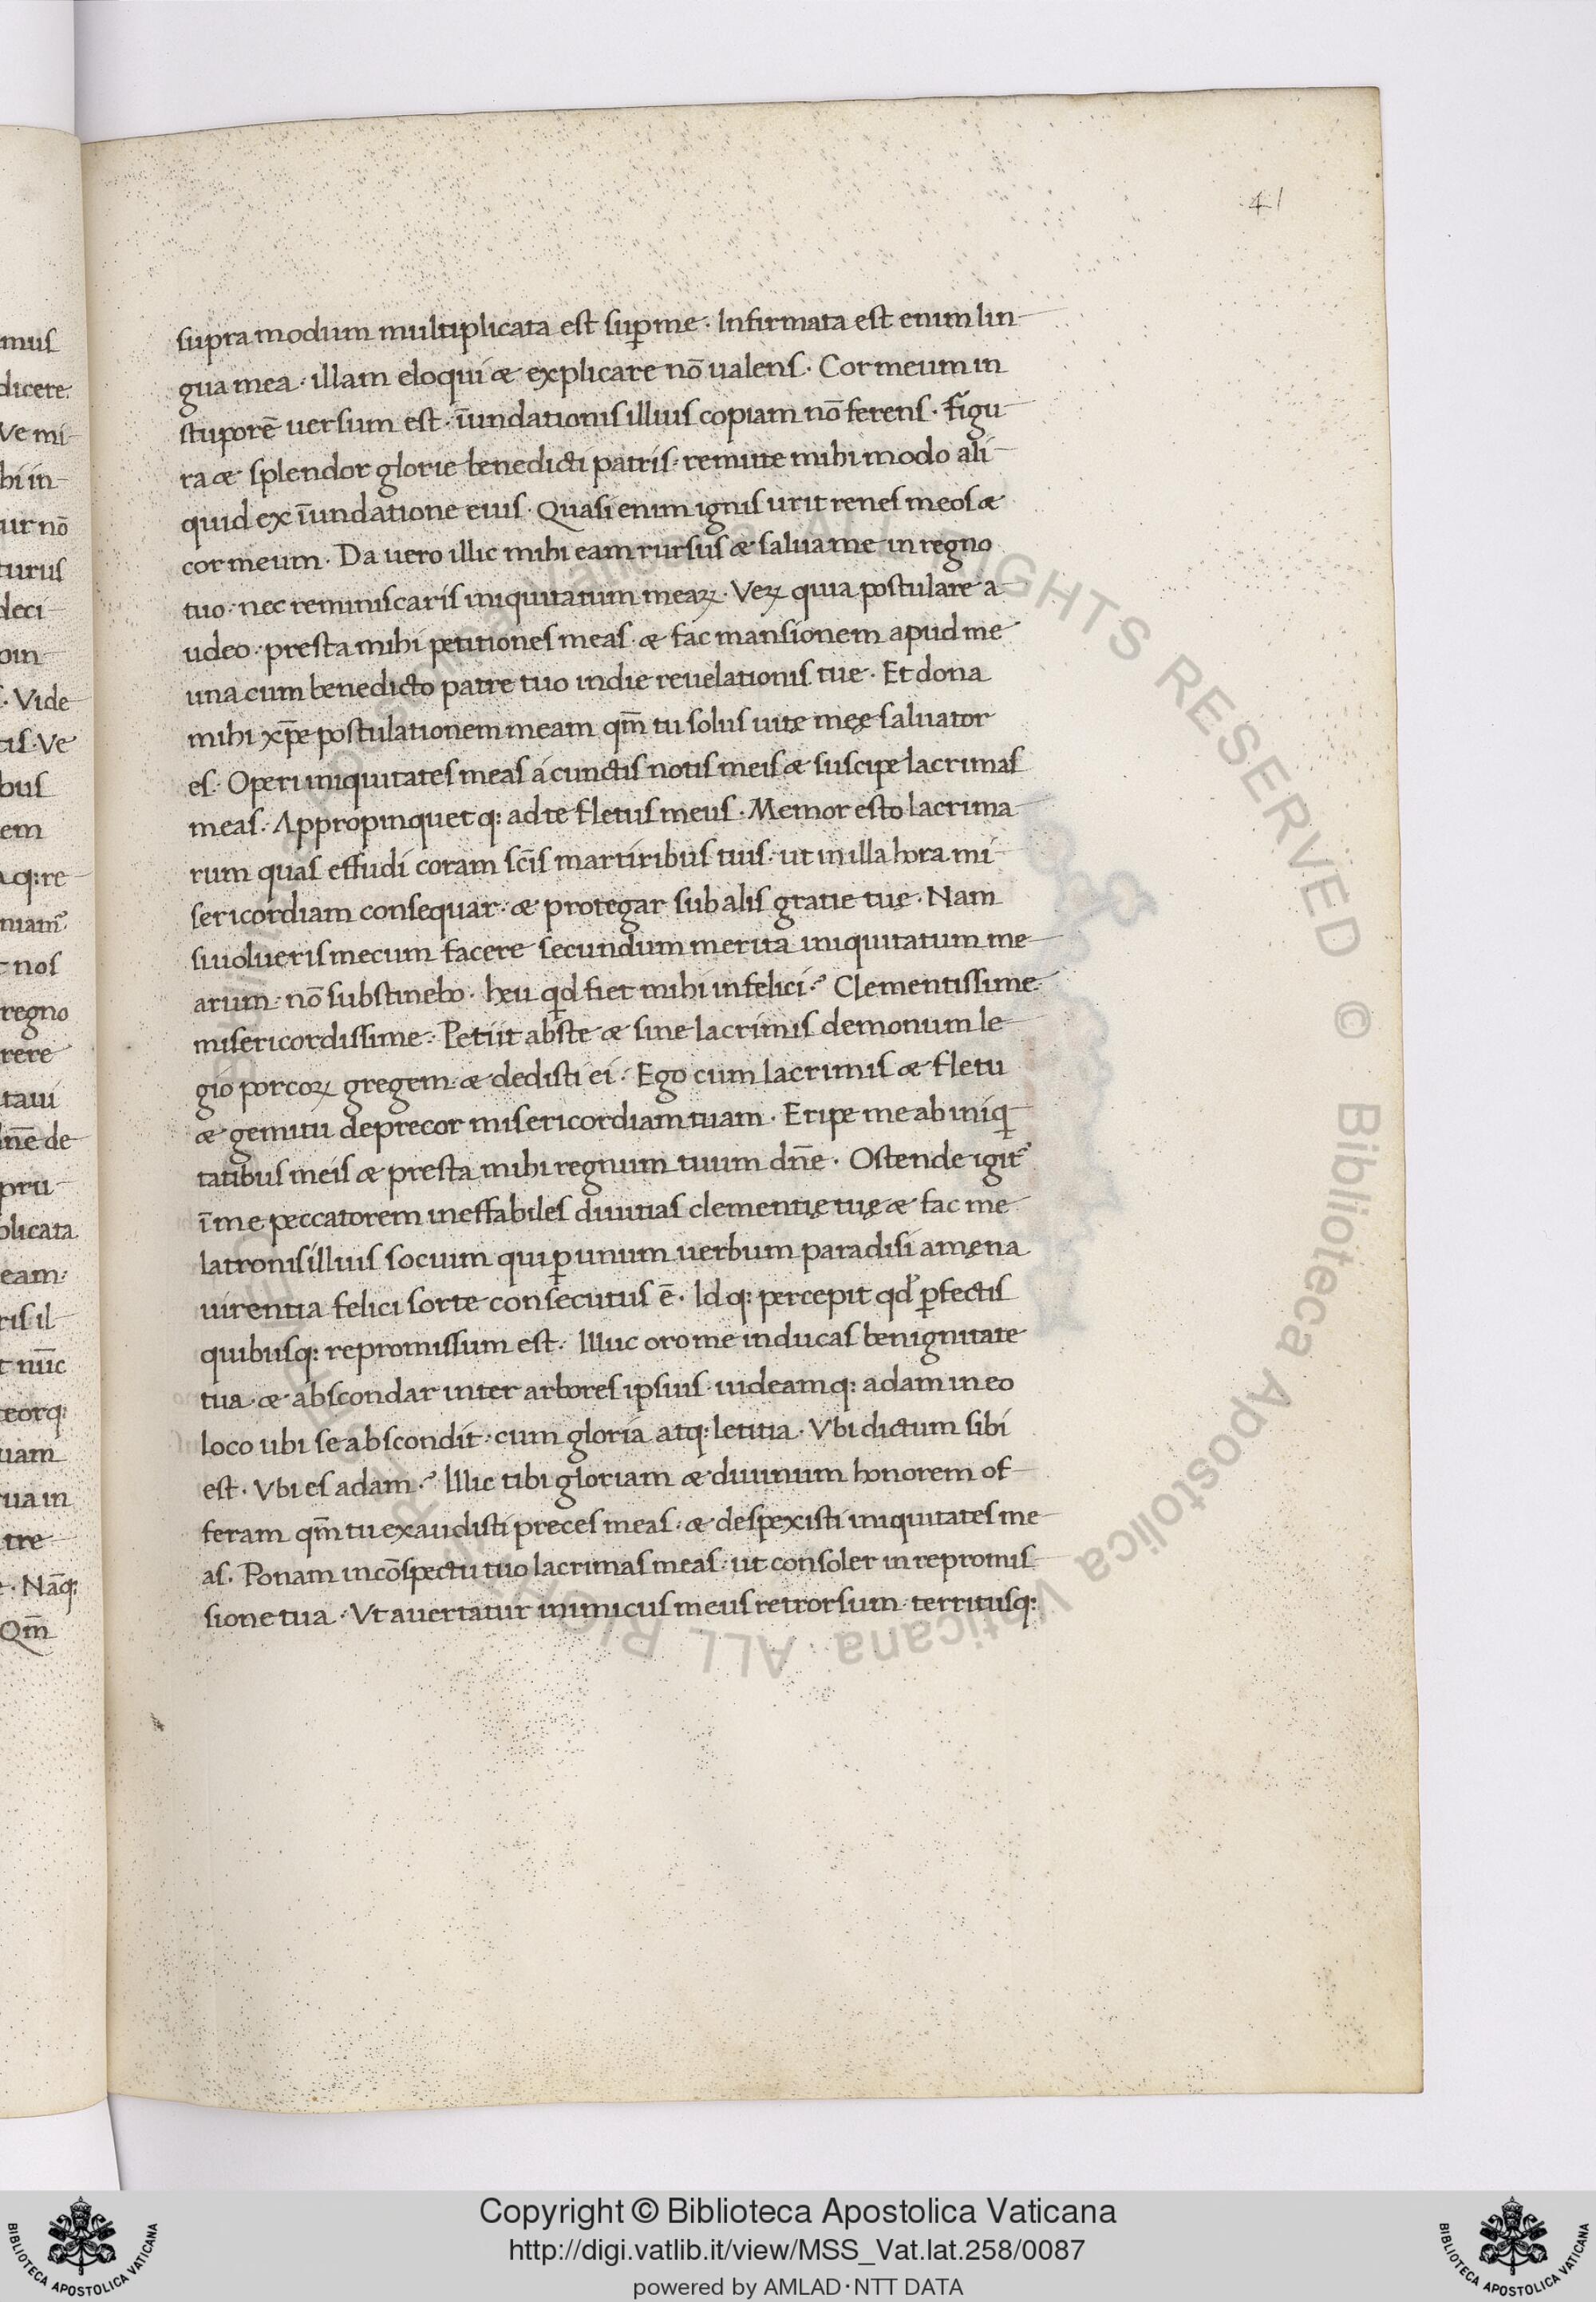 41
mus
dicere.
Ve mi
hi in
ur nō
turus
deci
oin
s. Vide
tis. Ve
bus
em
aq: re
niam?
t nos
regno
rere
taui
dn̄e de
pru
plicata
eam:
ris il
t nūc
teorq:
uam
tua in
tre
t. Nāq:
Qm̄
supra modum multiplicata est suꝑ me. Infirmata est enim lin
gua mea. illam eloqui æ explicare nō ualens. Cor meum in
stuporē uersum est. īundationis illius copiam nō ferens. Figu
ra æ splendor glorie benedicti patris. remitte mihi modo ali
quid ex īundatione eius. Quasi enim ignis urit renes meos æ
cor meum. Da uero illic mihi eam rursus æ salua me in regno
tuo. nec reminiscaris iniquitatum meaꝝ. Veꝝ quia postulare a
udeo. presta mihi petitiones meas. æ fac mansionem apud me
una cum benedicto patre tuo in die reuelationis tue. Et dona
mihi xp̄e postulationem meam qm̄ tu solus uitę meę saluator
es. Operi iniquitates meas a cunctis notis meis æ suscipe lacrimas
meas. Appropinquet q: ad te fletus meus. Memor esto lacrima
rum quas effudi coram sc̄is martiribus tuis. ut in illa hora mi
sericordiam consequar. æ protegar sub alis gratie tuę. Nam
si uolueris mecum facere secundum merita iniquitatum me
arum. nō substinebo. heu qd fiet mihi infelici? Clementissime
misericordissime. Petiit abs te æ sine lacrimis demonum le
gio porcoꝝ gregem. æ dedisti ei. Ego cum lacrimis æ fletu
æ gemitu deprecor misericordiam tuam. Eripe me ab iniq
tatibus meis æ presta mihi regnum tuum dn̄e. Ostende igit᷑
ī me peccatorem ineffabiles diuitias clementię tuę æ fac me
latronis illius socium qui ꝑ unum uerbum paradisi amęna
uirentia felici sorte consecutus ē. Id q: percepit qd ꝑfectis
quibusq: repromissum est. Illuc oro me inducas benignitate
tua. æ abscondar inter arbores ipsius. uideam q: adam in eo
loco ubi se abscondit. cum gloria atq: letitia. Vbi dictum sibi
est. Vbi es adam? Illic tibi gloriam æ diuinum honorem of
feram qm̄ tu exaudisti preces meas. æ despexisti iniquitates me
as. Ponam in cōspectu tuo lacrimas meas. ut consoler in repromis
sione tua. Vt auertatur inimicus meus retrorsum. territusq:
Biblioteca Apostolica Vaticana ALL RIGHTS RESERVED © Biblioteca Apostolica Vaticana ALL RIGHTS RESERVED ©
Copyright © Biblioteca Apostolica Vaticana
http://digi.vatlib.it/view/MSS_Vat.lat.258/0087
powered by AMLAD·NTT DATA
BIBLIOTECA APOSTOLICA VATICANA
BIBLIOTECA APOSTOLICA VATICANA